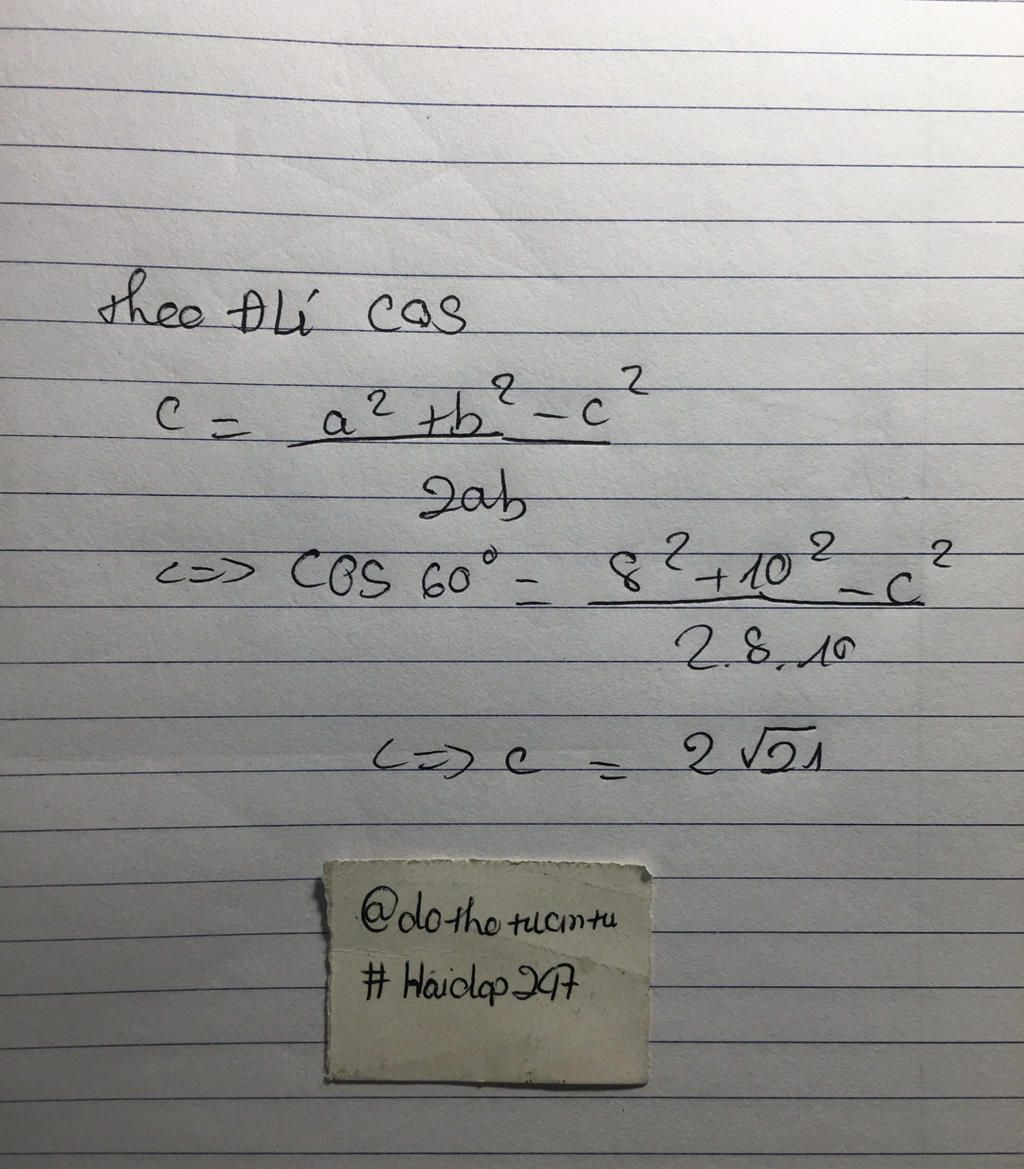 theo ĐLí COS
C = a² + b² - c² / 2ab
<=> COS 60° = 8² + 10² - c² / 2.8.10
<=> c = 2√21
# Hoidap247